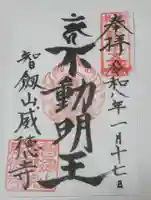 奉拝 令和八年一月十七日
不動明王
智劔山威徳寺